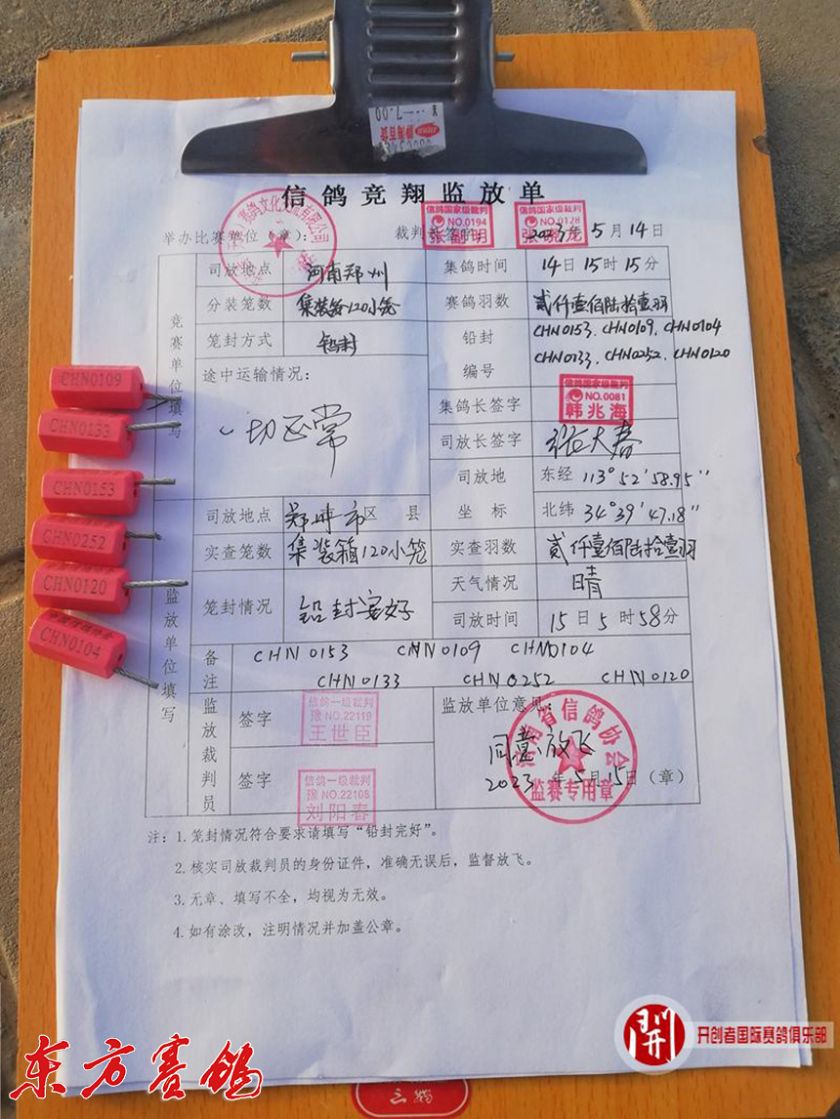 信鸽竞翔监放单
信鸽国家级裁判
NO.0194
张副明
信鸽国家级裁判
NO.0128
举办比赛单位（章）： 裁判长签 2023年5月14日
竞赛单位填写
司放地点 河南郑州 集鸽时间 14日15时15分
分装笼数 集装箱120小笼 赛鸽羽数 贰仟壹佰陆拾壹羽
笼封方式 铅封 铅封编号 CHN0153、CHN0109、CHN0104
CHN0133、CHN0252、CHN0120
途中运输情况：
一切正常
集鸽长签字
信鸽国家级裁判
NO.0081
韩兆海
司放长签字 张大春
司放地坐标 东经 113°52′58.95″
北纬 34°39′47.18″
监放单位填写
司放地点 郑州市区 县
实查笼数 集装箱120小笼 实查羽数 贰仟壹佰陆拾壹羽
笼封情况 铅封完好 天气情况 晴
司放时间 15日5时58分
备注 CHN0153 CHN0109 CHN0104
CHN0133 CHN0252 CHN0120
监放裁判员
签字
信鸽一级裁判
豫NO.22119
王世臣
签字
信鸽一级裁判
豫NO.22108
刘阳春
监放单位意见：
同意放飞
2023年5月15日（章）
河南省信鸽协会
监赛专用章
注：1.笼封情况符合要求请填写“铅封完好”。
2.核实司放裁判员的身份证件，准确无误后，监督放飞。
3.无章、填写不全，均视为无效。
4.如有涂改，注明情况并加盖公章。
CHN0109
CHN0133
CHN0153
CHN0252
CHN0120
CHN0104
东方赛鸽
开创者国际赛鸽俱乐部